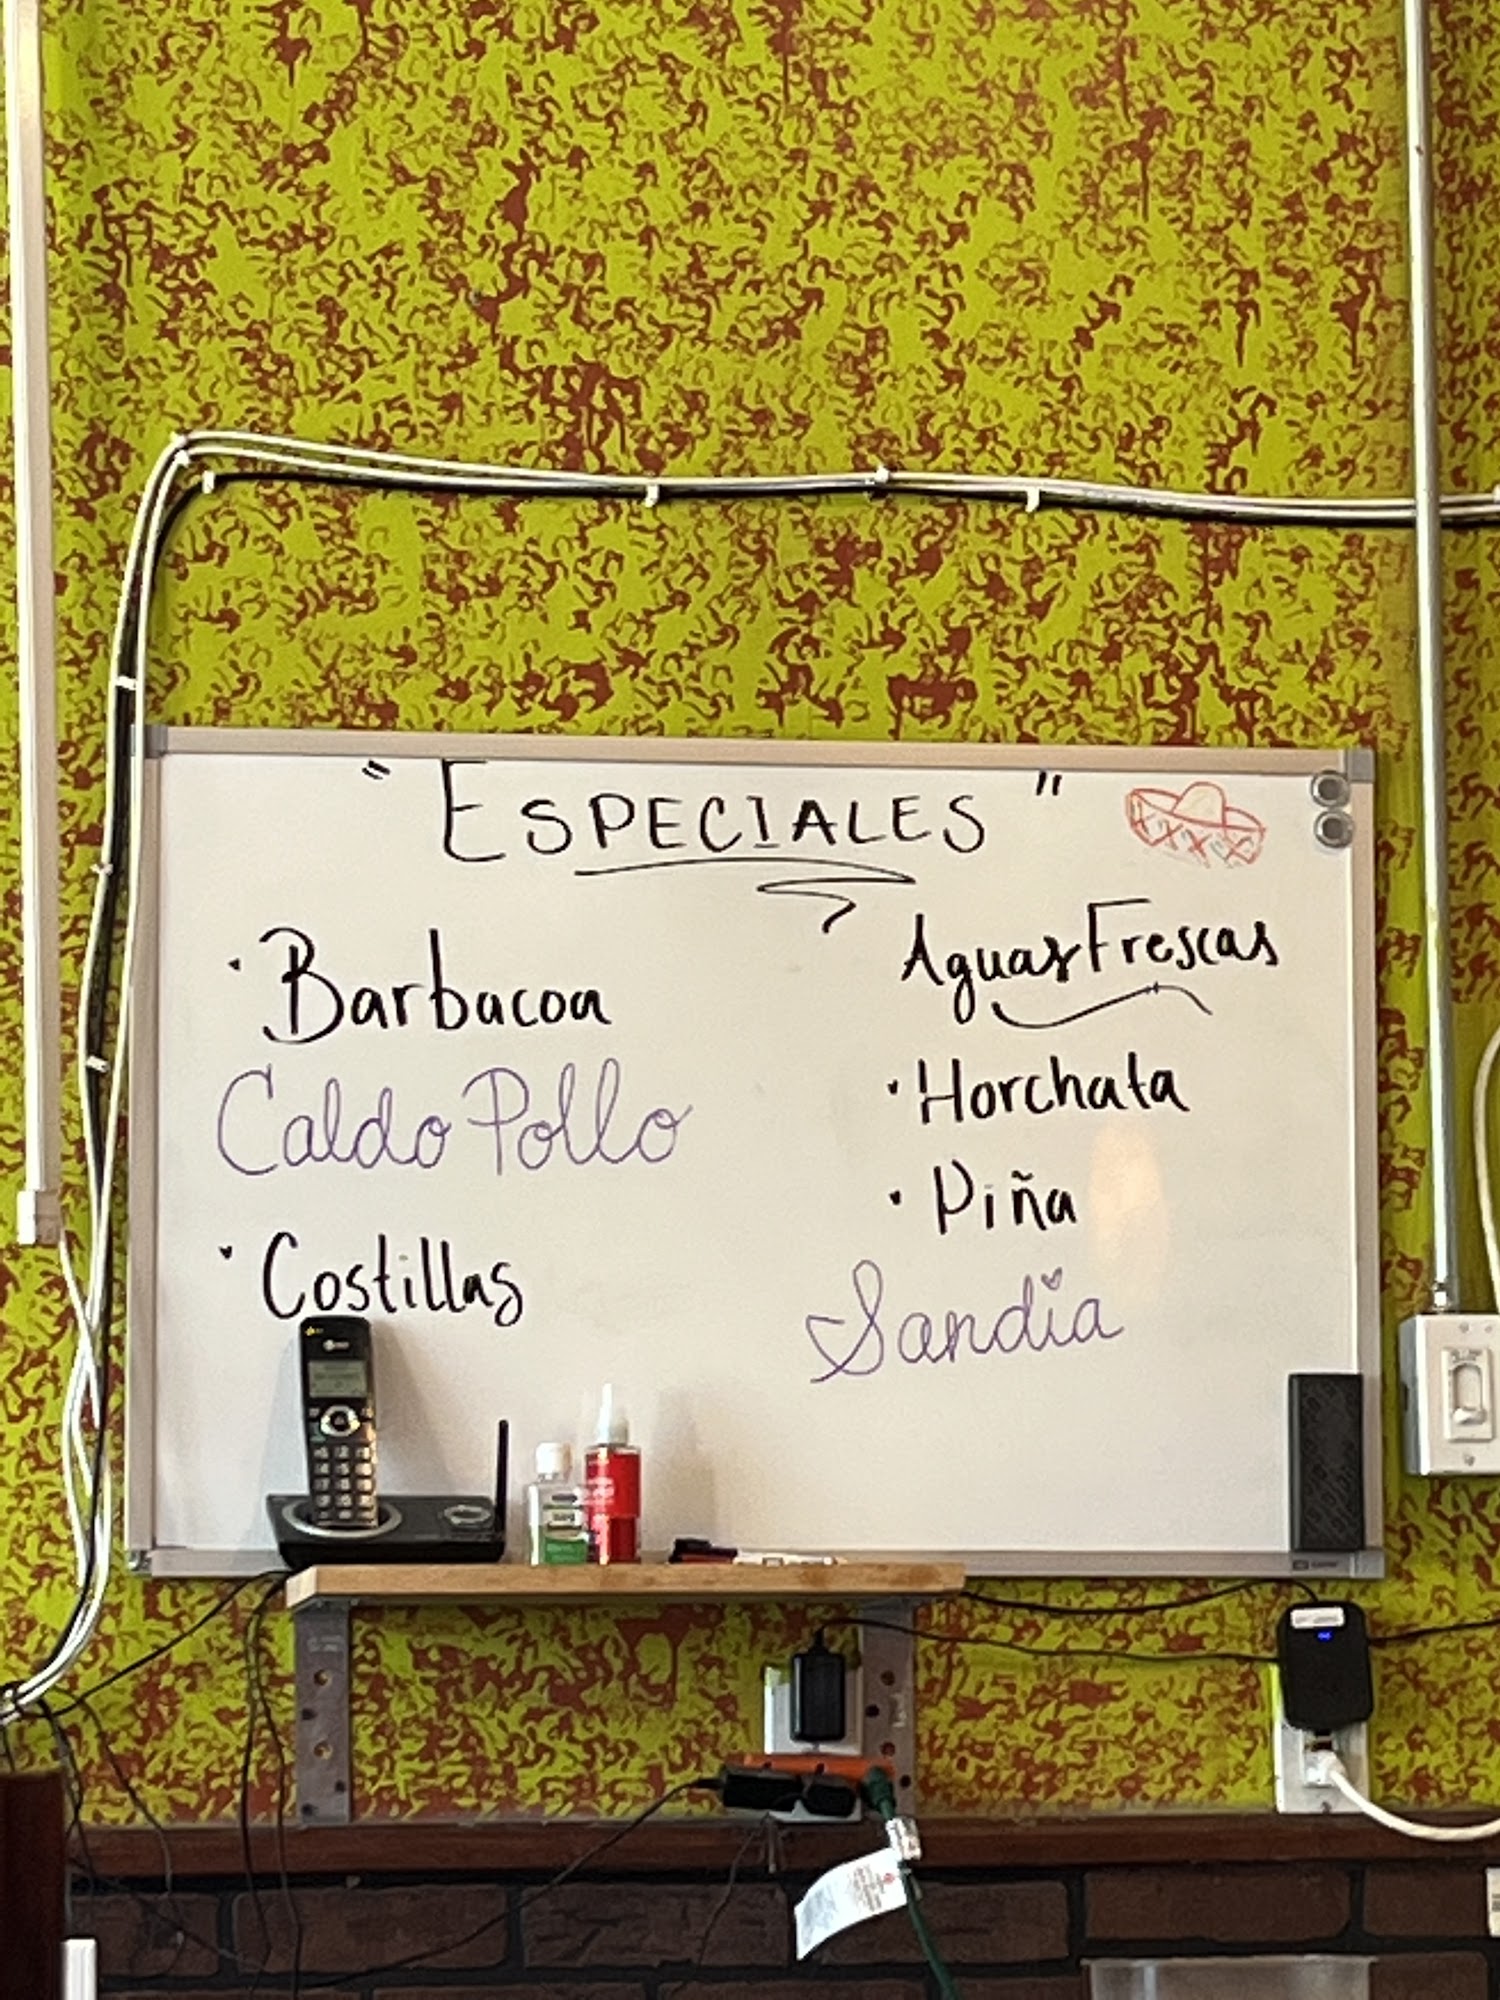 "ESPECIALES"
· Barbacoa
Caldo Pollo
· Costillas
Aguas Frescas
· Horchata
· Piña
Sandia
AT&T